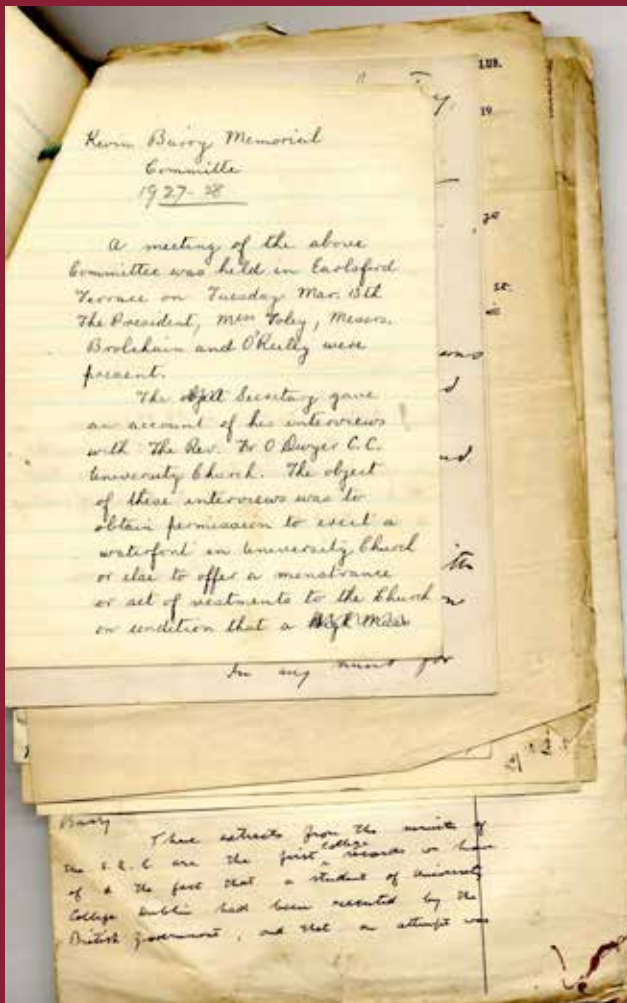 Kevin Barry Memorial
Committe
1927-28
A meeting of the above
Committee was held in Earlsford
Terrace on Tuesday Mar. 13th
The President, Miss Foley, Messrs.
Brolchain and O'Reilly were
present.
The Secretary gave
an account of his interviews
with The Rev. Fr O Dwyer C.C.
University Church. The object
of these interviews was to
obtain permission to erect a
waterfont in University Church
or else to offer a monstrance
or set of vestments to the Church
on condition that a High Mass
In any event for
19
Barry
These extracts from the minute of
the S.R.C are the first College records we have
of the fact that a student of University
College Dublin had been executed by the
British Government, and that an attempt was